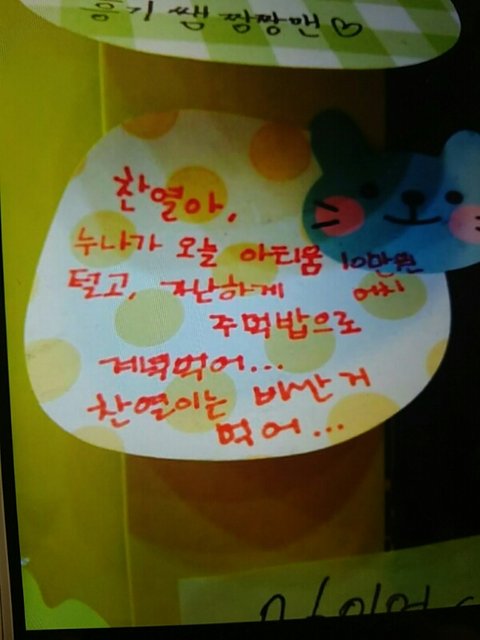 흥기 쌤 짱짱맨♡
찬열아,
누나가 오늘 아티움 10만원
어치
털고, 가난하게
주먹밥으로
계뿍먹어...
찬열이는 비싼 거
먹어...